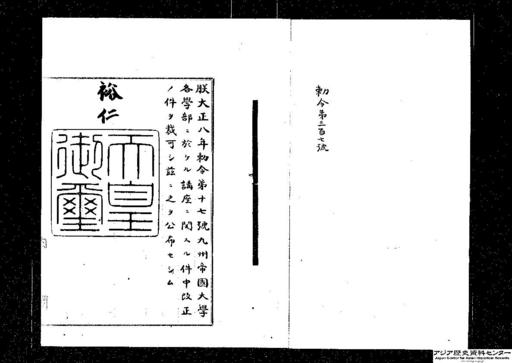 勅令第三百七號
朕大正八年勅令第十七號九州帝國大學
各學部ニ於ケル講座ニ関スル件中改正
ノ件ヲ裁可シ茲ニ之ヲ公布セシム
裕仁
天皇
御璽
アジア歴史資料センター
Japan Center for Asian Historical Records